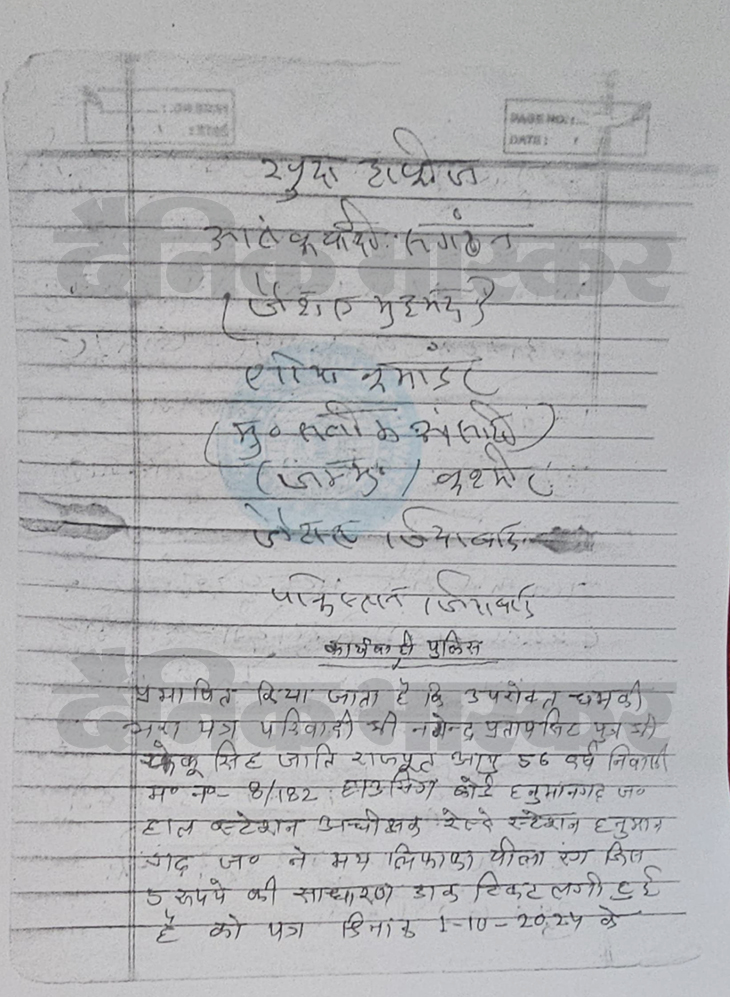 PAGE NO.:
DATE:
PAGE NO.:
DATE:
खुदा हाफीज
आतंकवादी संगठन
(जैशल मुहमंद)
एरिया कमांडर
(मु० सलीम अंसारी)
(जम्मू) कश्मीर
जैसल जिंदाबाद
पाकिस्तान जिंदाबाद
कार्यवाही पुलिस
प्रमाणित किया जाता है कि उपरोक्त धमकी
भरा पत्र परिवादी श्री नगेन्द्र प्रतापसिंह पुत्र श्री
सिंह जाति राजपूत आयु 56 वर्ष निवासी
म० न०- 8/182 हाउसिंग बोर्ड हनुमानगढ ज०
हाल स्टेशन अधीक्षक रेल्वे स्टेशन हनुमान
गढ ज० ने मय लिफाफा पीला रंग जिस
5 रूपये की साधारण डाक टिकट लगी हुई
है को पत्र दिनांक 1-10-2024 के
दैनिक भास्कर
दैनिक भास्कर